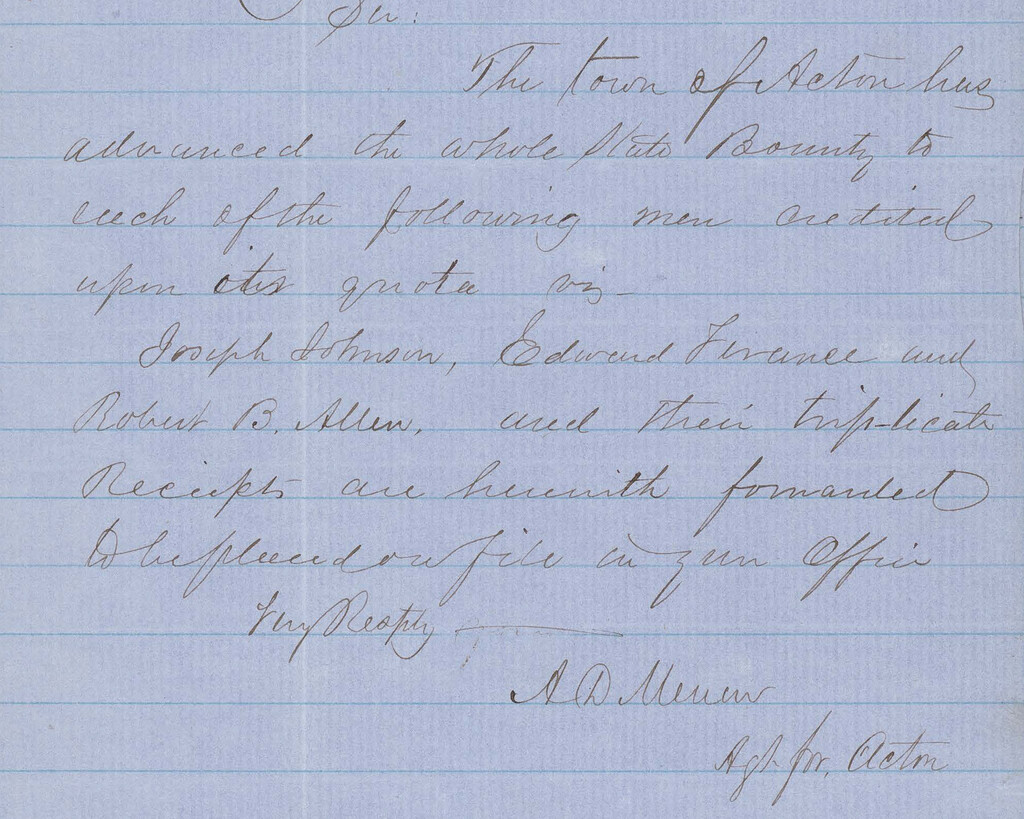 Sir:
The town of Acton has
advanced the whole State Bounty to
each of the following men credited
upon its quota viz-
Joseph Johnson, Edward Terance and
Robert B. Allen. and their triplicate
Receipts are herewith forwarded
to be placed on file in your Office
Very Resptly
A D
Agt for. Acton